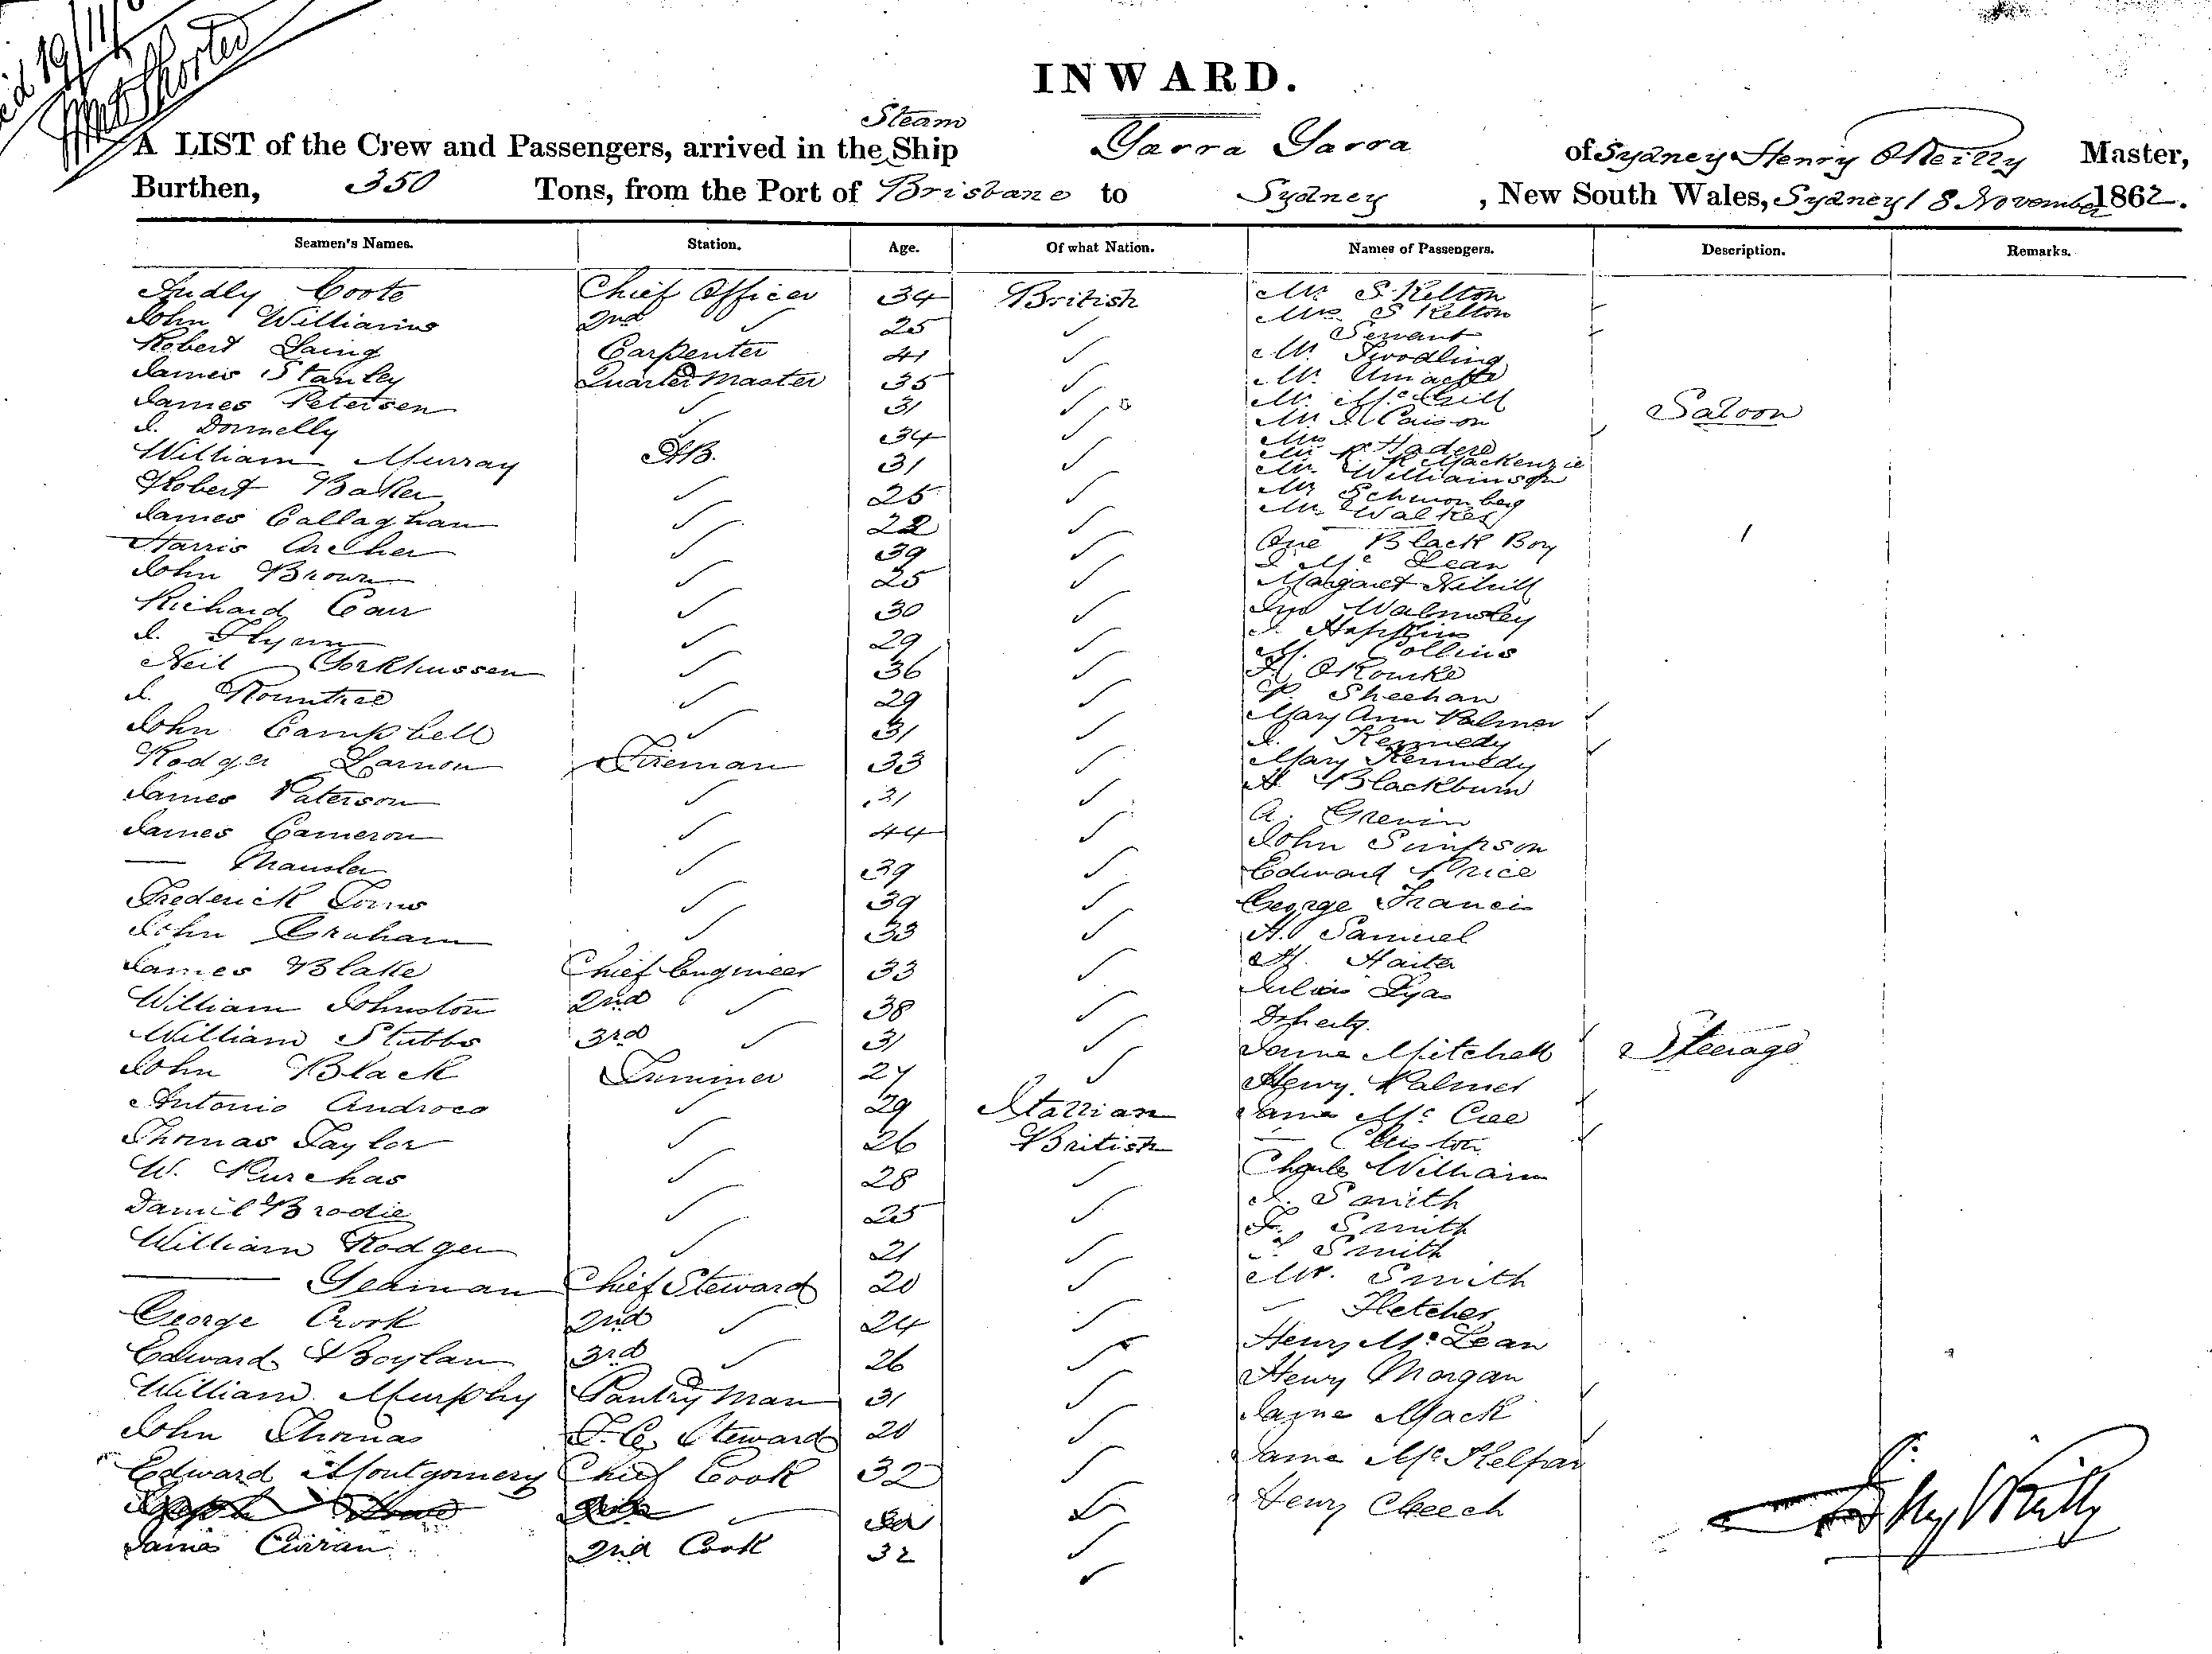 19/11/6
INWARD.
Steam
A LIST of the Crew and Passengers, arrived in the Ship Yarra Yarra of Sydney Henry O'Reilly Master,
Burthen, 350 Tons, from the Port of Brisbane to Sydney , New South Wales, Sydney 18 November 1862.
Seamen's Names. Station. Age. Of what Nation. Names of Passengers. Description. Remarks.
Audly Coote Chief Officer 34 British Mr S. Kelton
John Williams 2nd ✓ 25 ✓ Mrs S Kelton
Servant
Robert Laing Carpenter 41 ✓ Mr
James Stanley Quarter Master 35 ✓ Mr
James Petersen ✓ 31 ✓ Mr McGill
Saloon
J. Donnelly ✓ 34 ✓ Mr
Mrs
William Murray AB. 31 ✓ Mr R Mackenzie
Mr Williamson
Robert Baker ✓ 25 ✓ Mr
Mr Walker
James Callaghan ✓ 22 ✓ One Black Boy 1
Harris Archer ✓ 39 ✓ J Mc Lean
John Brown ✓ 25 ✓ Margaret
Richard Carr ✓ 30 ✓ Walmsley
J. Flynn ✓ 29 ✓ J. Hopkins
Collins
Neil ✓ 36 ✓ O'Rourke
J. Rountree ✓ 29 ✓ P. Sheehan
John Campbell ✓ 31 ✓ Mary Ann Palmer
J. Kennedy
Rodger Larnon Fireman 33 ✓ Mary Kennedy
James Paterson ✓ 31 ✓ Blackburn
James Cameron ✓ 44 ✓ A.
John Simpson
— ✓ 39 ✓ Edward Price
Frederick ✓ 39 ✓ George Francis
John Graham ✓ 33 ✓ H. Samuel
James Blake Chief Engineer 33 ✓
William Johnston 2nd ✓ 38 ✓ Julius
Doherty.
William Stubbs 3rd ✓ 31 ✓ Jame Mitchell Steerage
John Black Trimmer 27 ✓ Henry Palmer
Antonio Androca ✓ 29 Itallian Mc
Thomas Taylor ✓ 26 British —
W. Purchas ✓ 28 ✓ Charles William
Daniel Brodie ✓ 25 ✓ J. Smith
F. Smith
William Rodger ✓ 21 ✓ Smith
— Yeaman Chief Steward 20 ✓ Mr. Smith
George Crook 2nd ✓ 24 ✓ — Fletcher
Edward Boylan 3rd ✓ 26 ✓ Henry Mc Lean
William Murphy Pantry Man 31 ✓ Henry Morgan
John Thomas F. C. Steward 20 ✓ Jame Mack
Edward Montgomery Chief Cook 32 ✓ Mc
✓ Henry Cheech
James Curran 2nd Cook 32 ✓